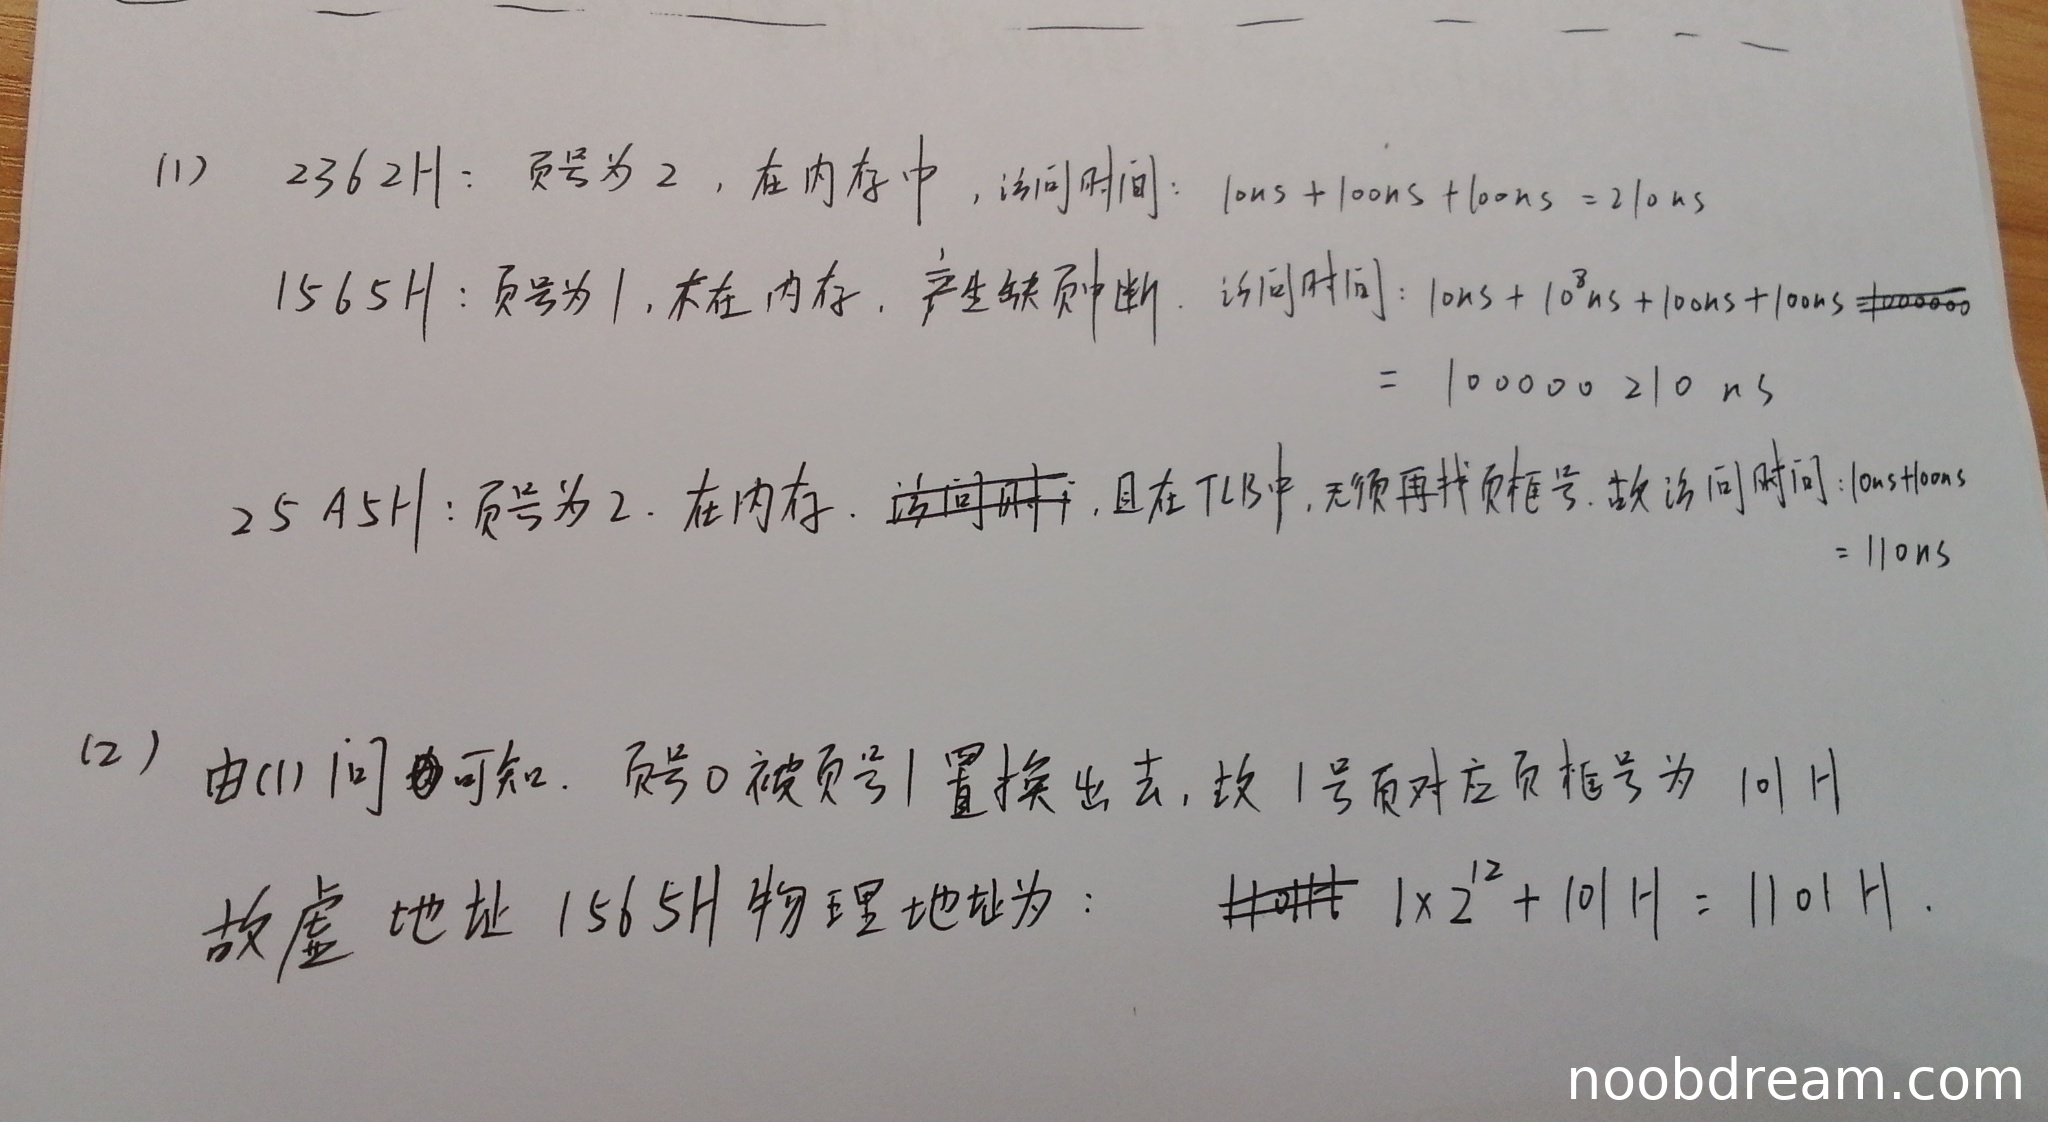 (1) 2362H: 页号为2，在内存中，访问时间: 10ns+100ns+100ns=210ns
1565H: 页号为1，未在内存，产生缺页中断. 访问时间: 10ns+10⁸ns+100ns+100ns
= 100000210 ns
25A5H: 页号为2. 在内存. ，且在TLB中，无须再找页框号. 故访问时间: 10ns+100ns
= 110ns
(2) 由(1)问可知. 页号0被页号1置换出去，故1号页对应页框号为 101H
故虚地址1565H物理地址为: 1×2¹²+101H = 1101H.
noobdream.com